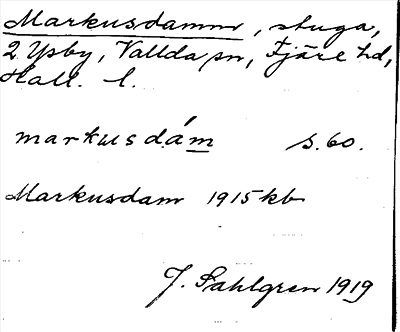 Markusdamm, stuga,
2 Ysby, Vallda sn, Fjäre hd,
Hall. l.
markusdám s. 60.
Markusdam 1915 kb
J. Sahlgren 1919